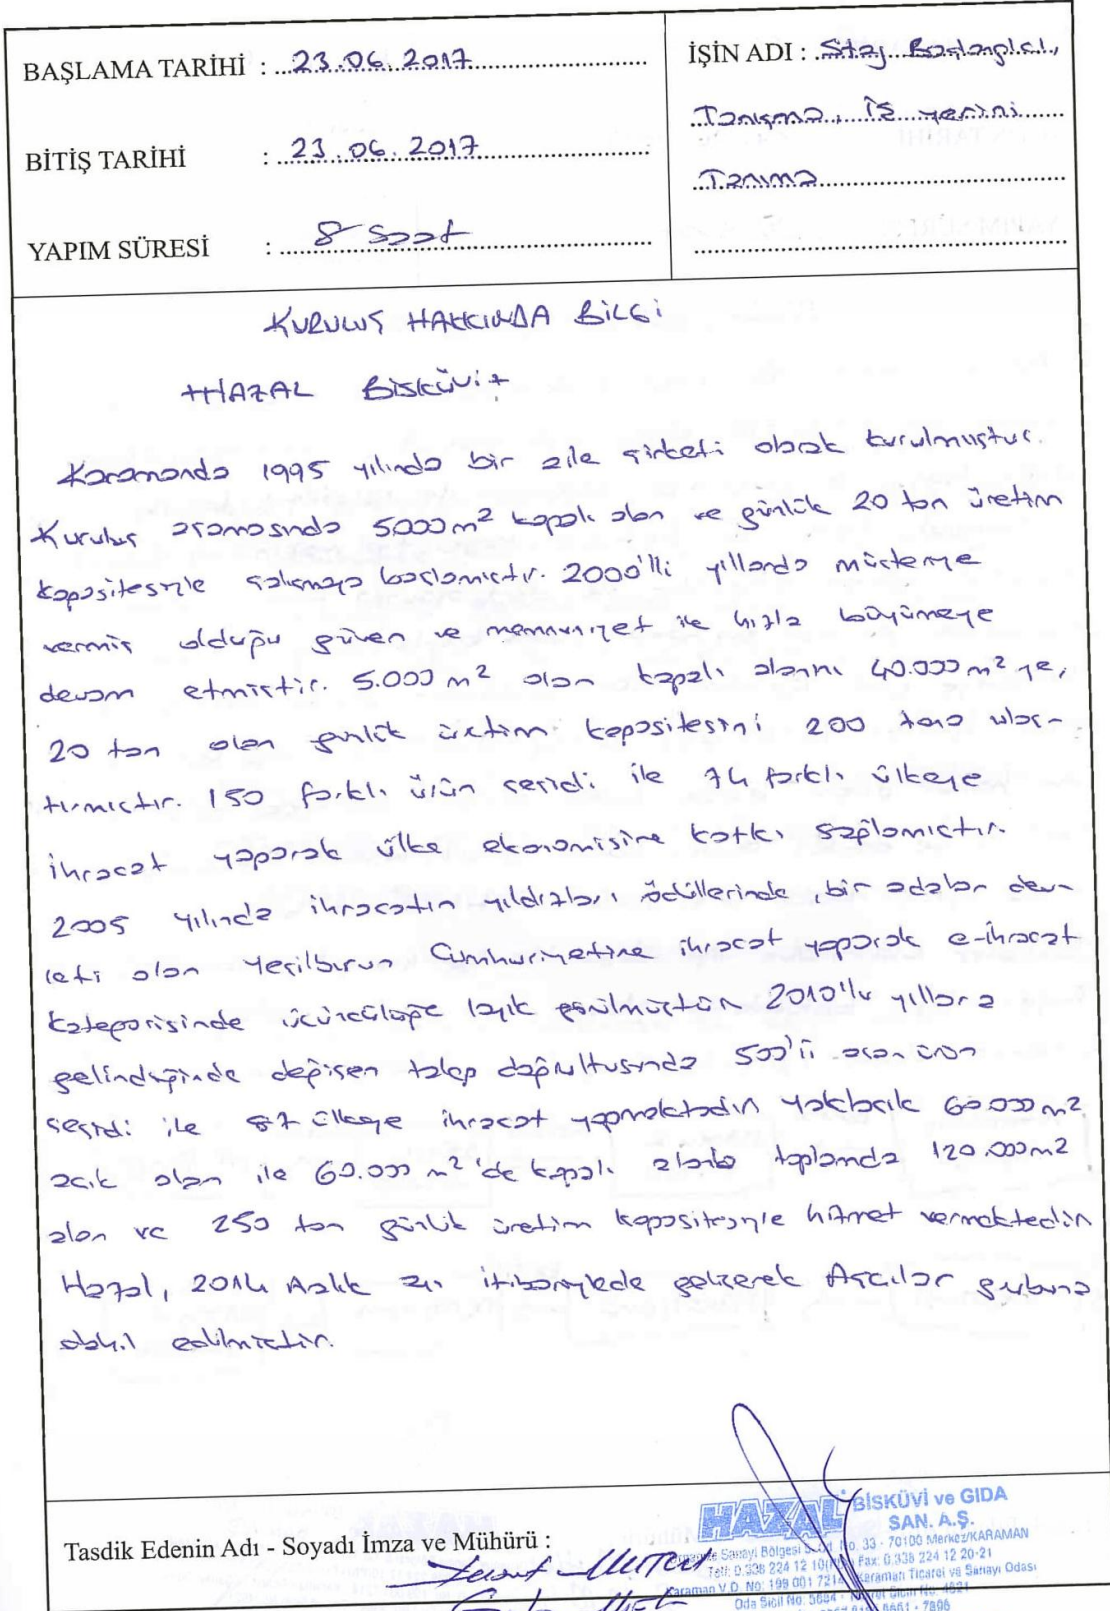 BAŞLAMA TARİHİ : 23.06.2017
BİTİŞ TARİHİ : 23.06.2017
YAPIM SÜRESİ : 8 Saat
İŞİN ADI : Staj Başlangıcı,
Tanışma, İş yerini
Tanıma
KURULUŞ HAKKINDA BİLGİ
HAZAL BİSKÜVİt
Karamanda 1995 yılında bir aile şirketi olarak kurulmuştur.
Kuruluş aşamasında 5000 m² kapalı alan ve günlük 20 ton üretim
kapasitesiyle çalışmaya başlamıştır. 2000'lli yıllarda müşteriye
vermiş olduğu güven ve memnuniyet ile hızla büyümeye
devam etmiştir. 5.000 m² olan kapalı alanını 40.000 m² ye,
20 ton olan günlük üretim kapasitesini 200 tona ulaş-
tırmıştır. 150 farklı ürün çeşidi ile 74 farklı ülkeye
ihracat yaparak ülke ekonomisine katkı sağlamıştır.
2005 yılında ihracatın yıldızları ödüllerinde, bir adalar dev-
leti olan Yeşilburun Cumhuriyetine ihracat yaparak e-ihracat
kategorisinde üçüncülüğe layık görülmüştür. 2010'lu yıllara
gelindiğinde değişen talep doğrultusunda 500'ü aşan ürün
çeşidi ile 87 ülkeye ihracat yapmaktadır. Yaklaşık 60.000 m²
açık alan ile 60.000 m² 'de kapalı alanla toplamda 120.000 m2
alan ve 250 ton günlük üretim kapasitesiyle hizmet vermektedir.
Hazal, 2014 Aralık ayı itibariylede gelişerek Aşçılar grubuna
dahil edilmiştir.
Tasdik Edenin Adı - Soyadı İmza ve Mühürü :
HAZAL BİSKÜVİ ve GIDA
SAN. A.Ş.
Sanayi Bölgesi No. 33 - 70100 Merkez/KARAMAN
Tel: 0.338 224 12 10 Fax: 0.338 224 12 20-21
Karaman V.D. No: 199 001 Karaman Ticaret ve Sanayi Odası
Oda Sicil No: